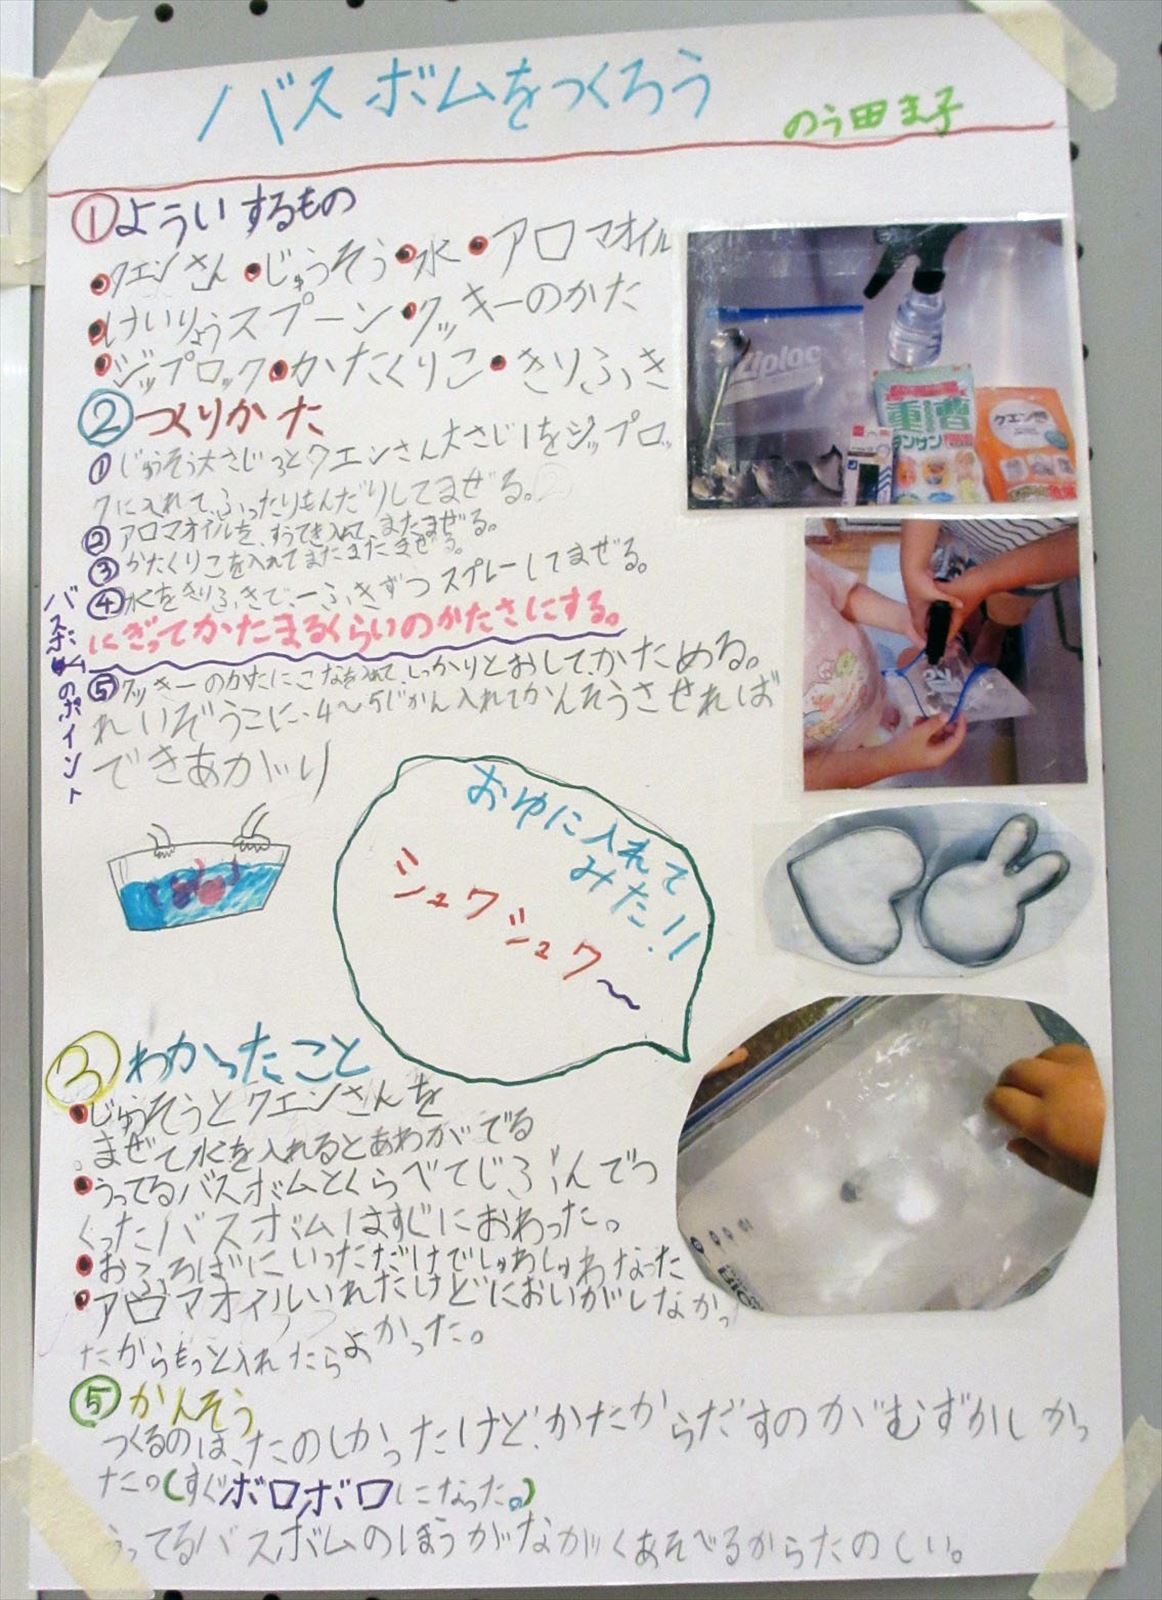 バスボムをつくろう
のう田ま子
①よういするもの
・クエンさん・じゅうそう・水・アロマオイル
・けいりょうスプーン・クッキーのかた
・ジップロック・かたくりこ・きりふき
②つくりかた
①じゅうそう大さじ2とクエンさん大さじ1をジップロッ
クに入れて、ふったりもんだりしてまぜる。
②アロマオイルを、すうてき入れて、またまぜる。
③かたくりこを入れてまたまたまぜる。
④水をきりふきで、一ふきずつスプレーしてまぜる。
にぎってかたまるくらいのかたさにする。
バスボムのポイント
⑤クッキーのかたにこなを入れて、しっかりとおしてかためる。
れいぞうこに、4〜5じかん入れてかんそうさせれば
できあがり
おゆに入れて
みた!!
シュワシュワ〜
③わかったこと
・じゅうそうとクエンさんを
まぜて水を入れるとあわがでる
・うってるバスボムとくらべてじぶんでつ
くったバスボムはすぐにおわった。
・おふろばにいっただけでしゅわしゅわなった
・アロマオイルいれたけどにおいがしなかっ
たからもっと入れたらよかった。
⑤かんそう
つくるのは、たのしかったけど、かたからだすのがむずかしかっ
た。(すぐボロボロになった。)
うってるバスボムのほうがながくあそべるからたのしい。
Ziploc
重曹
タンサン
クエン酸